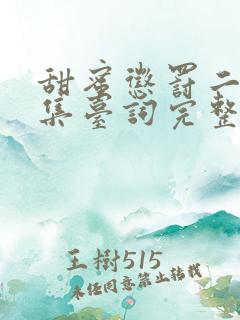 甜蜜懲罰二
集臺詞完整
王樹515
未经同意禁止转载